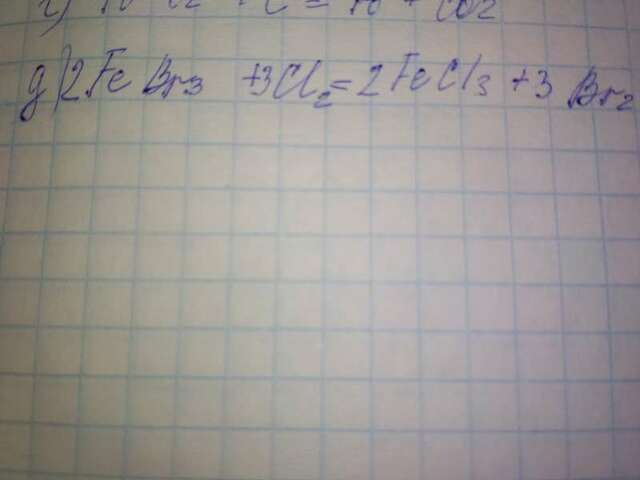 д) 2FeBr3 + 3Cl2 = 2FeCl3 + 3Br2